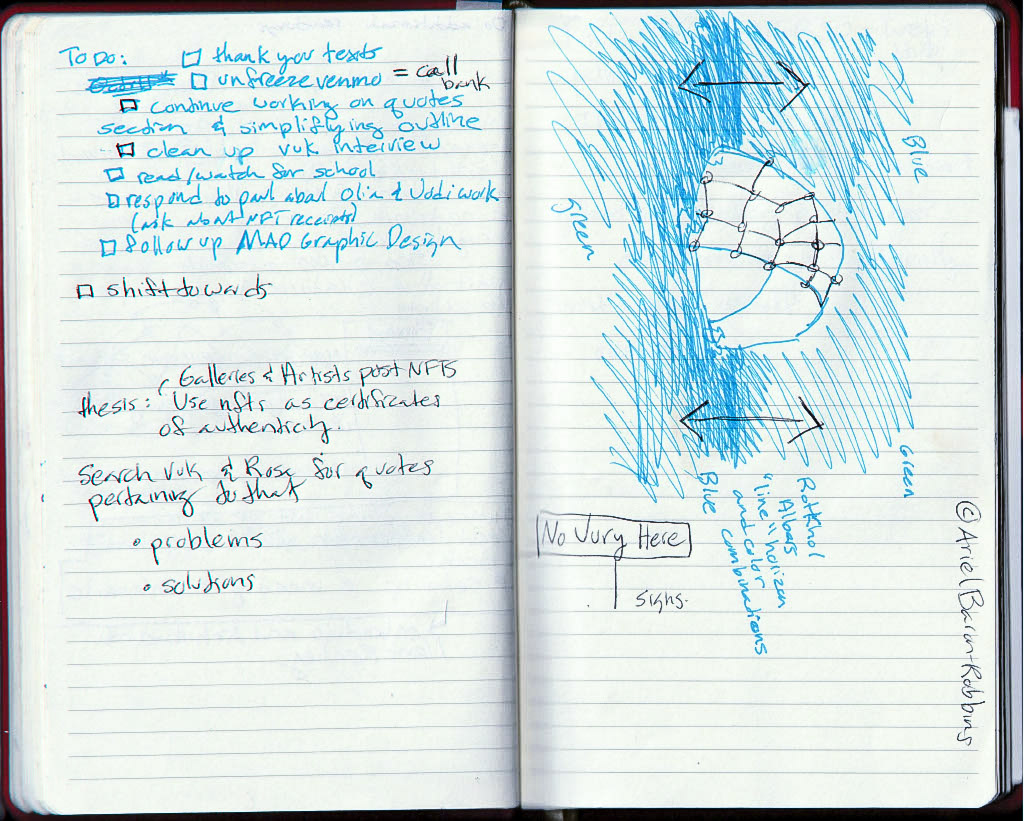 To Do: □ thank you texts
□ unfreeze venmo = call bank
□ continue working on quotes
section & simpliflying outline
□ clean up vuk interview
□ read/watch for school
□ respond to paul abat Olin & work
(ask about NFT receipts)
□ follow up MAD Graphic Design
□ shift towards
Galleries & Artists post NFTS
thesis: Use nfts as certificates
of authenticity.
Search vuk & Rosa for quotes
pertaining to that
• problems
• solutions
Blue
green
Green
Blue
RotKhol
Albers
"line" horizen
and color
combinations
No Vury Here
signs.
© Ariel Baron-Robbins